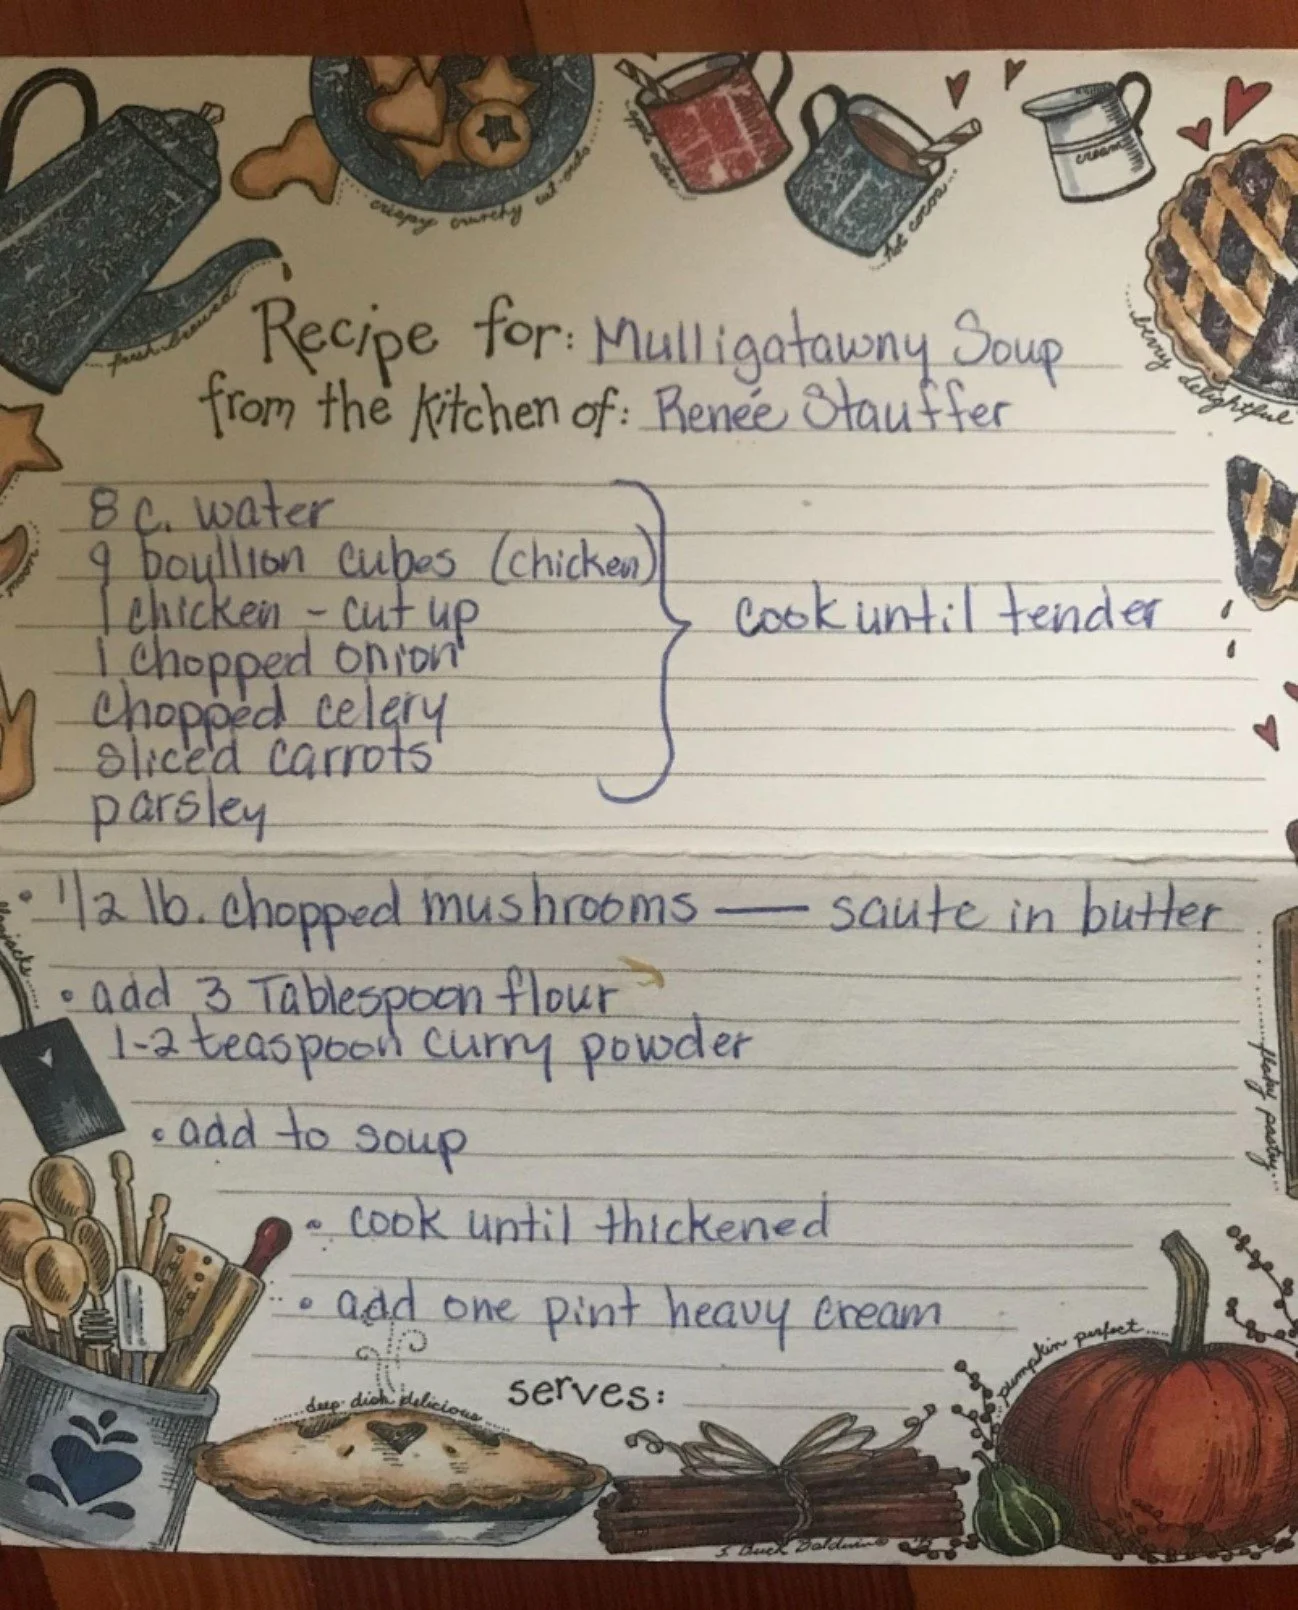 crispy crunchy cut-outs
apple cider
hot cocoa
cream
fresh brewed
berry delightful
Recipe for: Mulligatawny Soup
from the kitchen of: Renée Stauffer
8 c. water
9 boyllion cubes (chicken)
1 chicken - cut up
1 chopped onion
chopped celery
sliced carrots
parsley
cook until tender
• 1/2 lb. chopped mushrooms — saute in butter
• add 3 Tablespoon flour
1-2 teaspoon curry powder
• add to soup
• cook until thickened
• add one pint heavy cream
flaky pastry
serves:
deep-dish delicious
pumpkin perfect